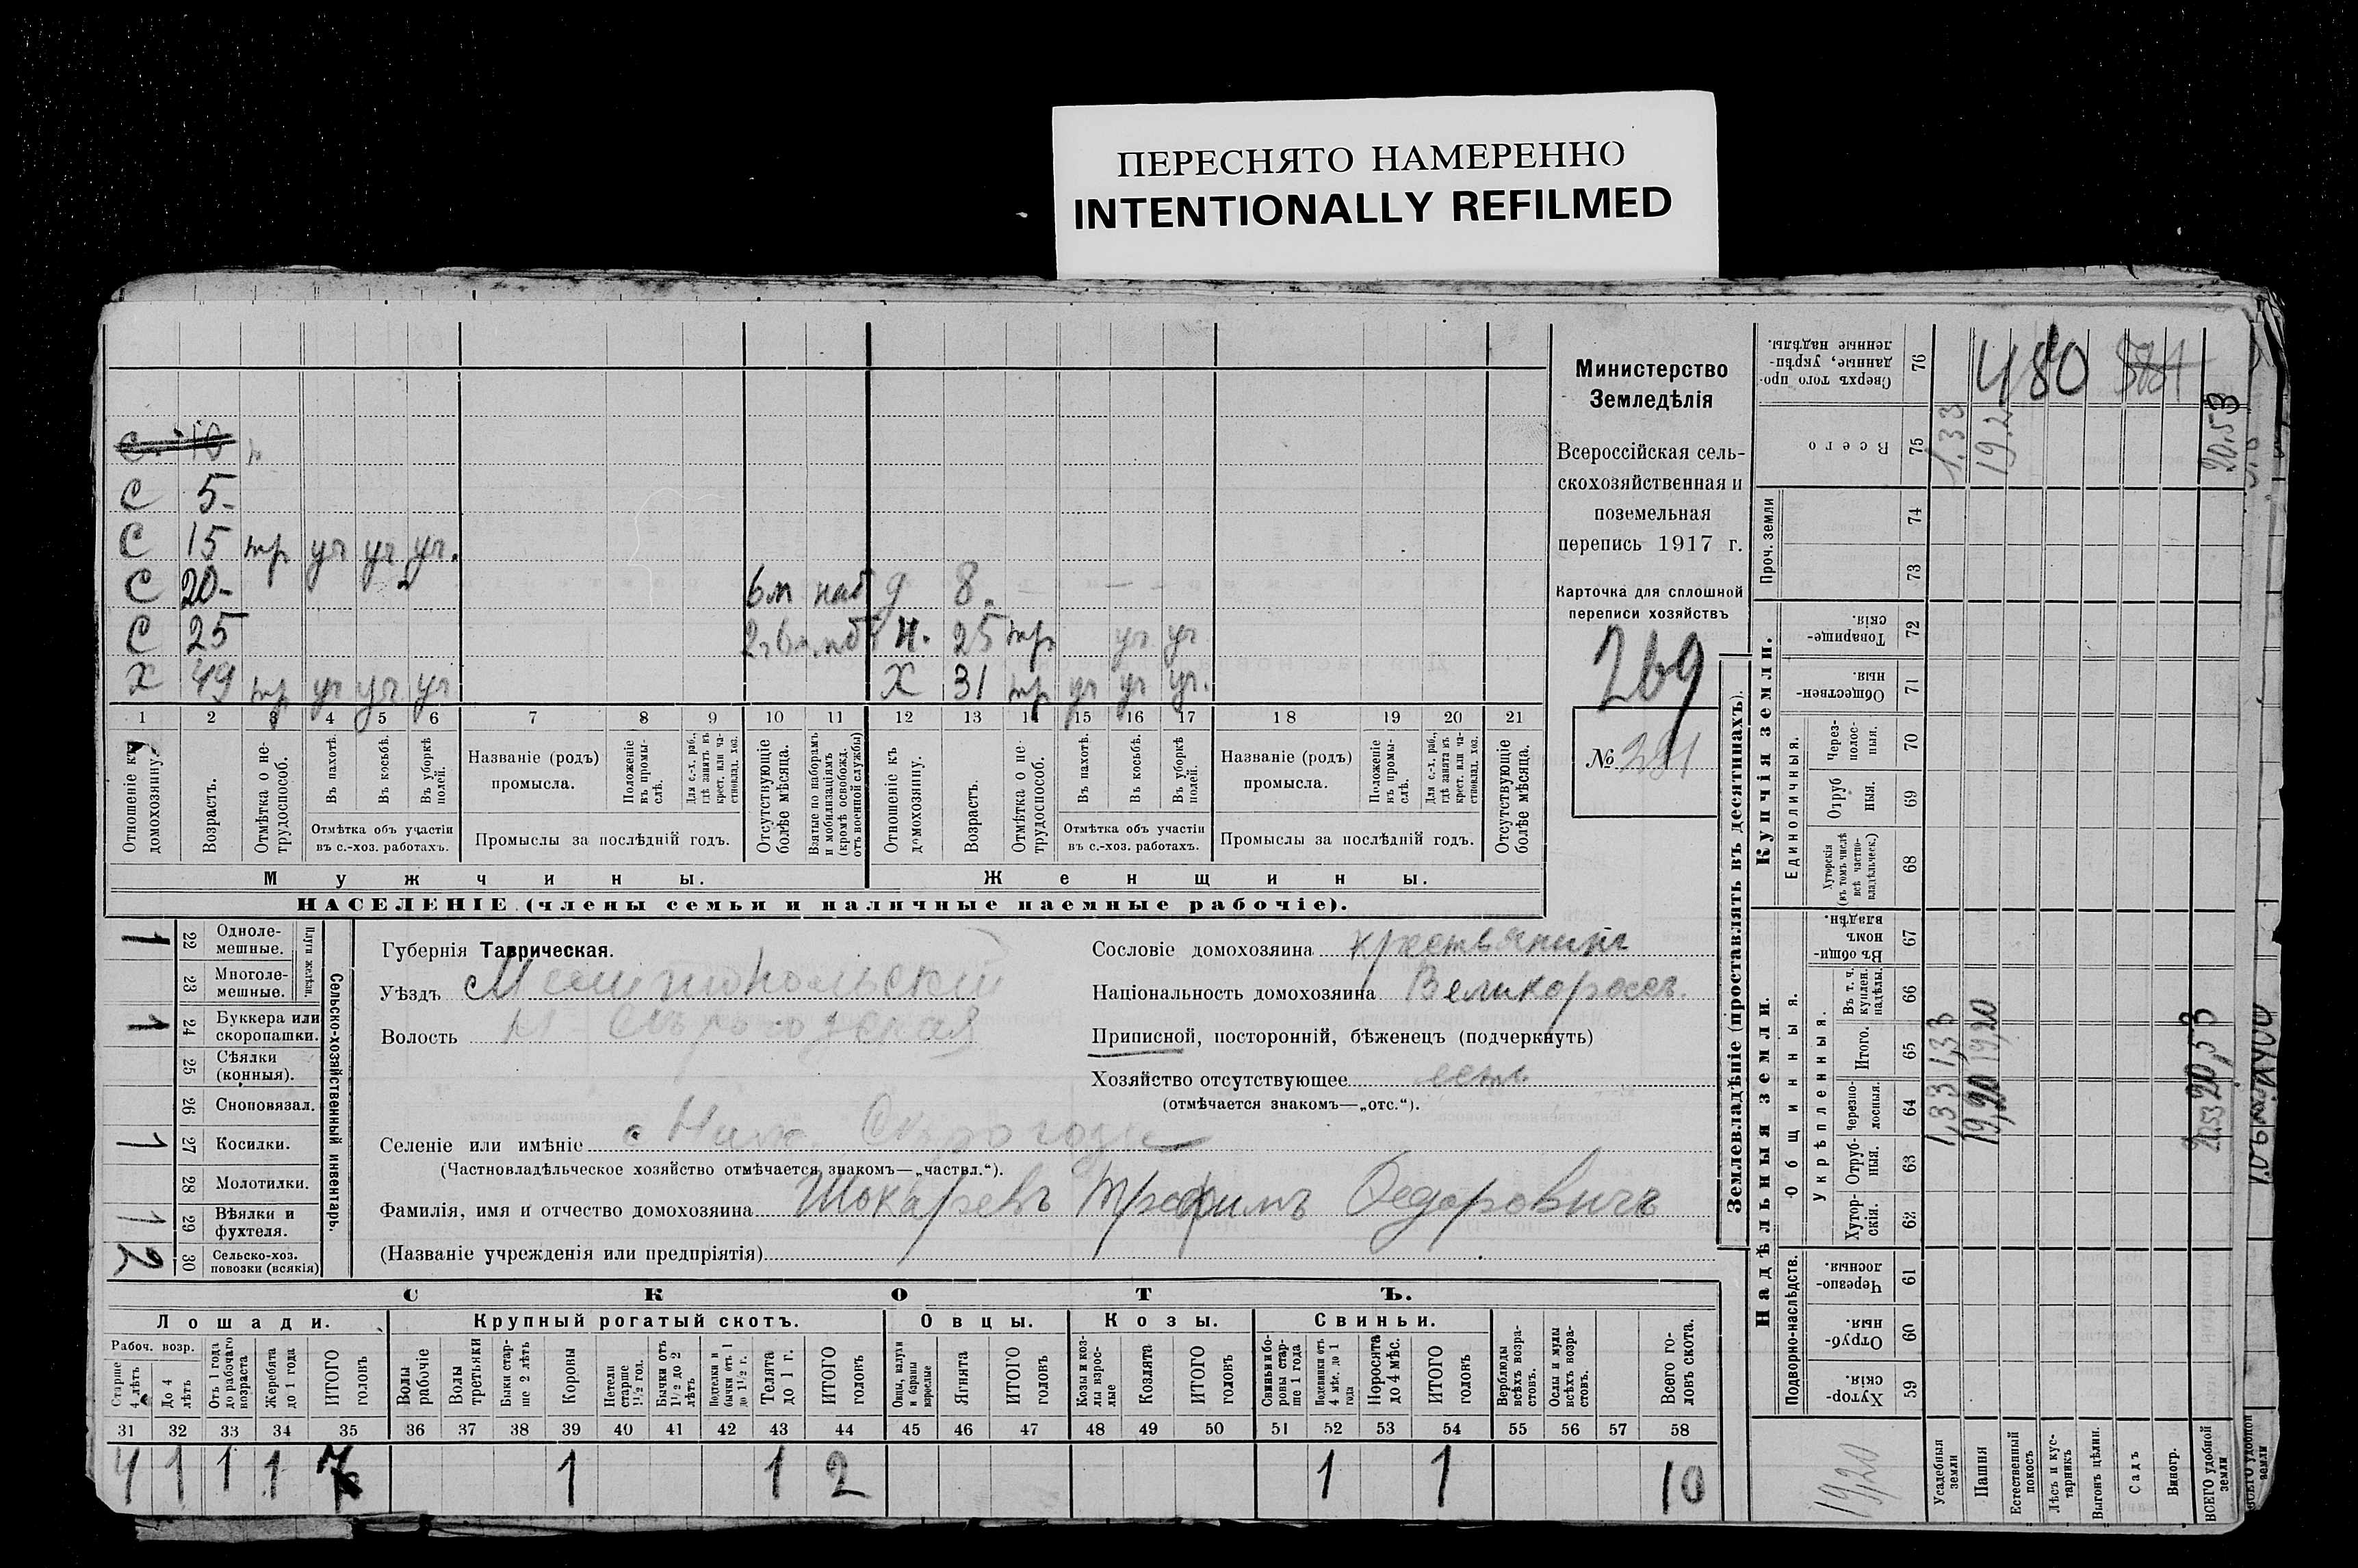 ПЕРЕСНЯТО НАМЕРЕННО
INTENTIONALLY REFILMED
С 10
С 5-
С 15 тр уч уч уч.
С 20- 6 м наб д 8.
С 25 н. 25 тр уч уч
Х 49 тр уч уч уч Х 31 тр уч уч уч.
1 2 3 4 5 6 7 8 9 10 11 12 13 14 15 16 17 18 19 20 21
Отношеніе къ домохозяину.
Возрастъ.
Отмѣтка о не-трудоспособ.
Въ пахотѣ.
Въ косьбѣ.
Въ уборкѣ полей.
Отмѣтка объ участіи въ с.-хоз. работахъ.
Названіе (родъ) промысла.
Положеніе въ промы-слѣ.
Для с.-х. раб., гдѣ занятъ въ крест. или ча-стновлад. хоз.
Промыслы за послѣдній годъ.
Отсутствующіе болѣе мѣсяца.
Взятые по наборамъ и мобилизаціямъ (кромѣ освобожд. отъ военной службы)
Отношеніе къ домохозяину.
Возрастъ.
Отмѣтка о не-трудоспособ.
Въ пахотѣ.
Въ косьбѣ.
Въ уборкѣ полей.
Отмѣтка объ участіи въ с.-хоз. работахъ.
Названіе (родъ) промысла.
Положеніе въ промы-слѣ.
Для с.-х. раб., гдѣ занята въ крест. или ча-стновлад. хоз.
Промыслы за послѣдній годъ.
Отсутствующіе болѣе мѣсяца.
Мужчины.
Женщины.
НАСЕЛЕНІЕ (члены семьи и наличные наемные рабочіе).
Министерство
Земледѣлія
Всероссійская сель-
скохозяйственная и
поземельная
перепись 1917 г.
Карточка для сплошной
переписи хозяйствъ
269
№ 281
1 22 Одноле-мешные.
23 Многоле-мешные.
Плуги желѣзн.
1 24 Буккера или скоропашки.
25 Сѣялки (конныя).
26 Сноповязал.
1 27 Косилки.
28 Молотилки.
1 29 Вѣялки и фухтеля.
2 30 Сельско-хоз. повозки (всякія)
Сельско-хозяйственный инвентарь.
Губернія Таврическая.
Уѣздъ Мелитопольскій
Волость Н Сѣрогозская
Сословіе домохозяина крестьянинъ
Національность домохозяина Великороссъ.
Приписной, посторонній, бѣженецъ (подчеркнуть)
Хозяйство отсутствующее есть
(отмѣчается знакомъ—„отс.“).
Селеніе или имѣніе с. Ниж. Сѣрогозы
(Частновладѣльческое хозяйство отмѣчается знакомъ—„частвл.“).
Фамилія, имя и отчество домохозяина Шокаревъ Трофимъ Федоровичъ
(Названіе учрежденія или предпріятія)
СКОТЪ.
Лошади. Крупный рогатый скотъ. Овцы. Козы. Свиньи.
Рабоч. возр.
Старше 4 лѣтъ
До 4 лѣтъ
Отъ 1 года до рабочаго возраста
Жеребята до 1 года
ИТОГО головъ
Волы рабочіе
Волы третьяки
Быки стар-ше 2 лѣтъ
Коровы
Нетели старше 1½ год.
Бычки отъ 1½ до 2 лѣтъ
Подтелки и бычки отъ 1 до 1½ г.
Телята до 1 г.
ИТОГО головъ
Овцы, валухи и бараны взрослые
Ягнята
ИТОГО головъ
Козы и коз-лы взрос-лые
Козлята
ИТОГО головъ
Свиньи и бо-ровы стар-ше 1 года
Подсвинки отъ 4 мѣс. до 1 года
Поросята до 4 мѣс.
ИТОГО головъ
Верблюды всѣхъ возра-стовъ.
Ослы и мулы всѣхъ возра-стовъ.
Всего го-ловъ скота.
31 32 33 34 35 36 37 38 39 40 41 42 43 44 45 46 47 48 49 50 51 52 53 54 55 56 57 58
4 1 1 1 7 1 1 2 1 1 10
Землевладѣніе (проставлять въ десятинахъ).
Надѣльныя земли.
Купчія земли.
Проч. земли
Сверхъ того про-данные, укрѣп-ленные надѣлы. 76 480 581
Всего 75 1,33 19,20 20,53
74
73
Товарище-скія. 72
Обществен-ныя. 71
Единоличныя.
Через-полос-ныя. 70
Отруб-ныя. 69
Хуторскія (въ томъ числѣ всѣ частно-владѣльческ.) 68
Общинныя.
Въ общин-номъ владѣн. 67
Укрѣпленныя.
Въ т. ч. куплен. надѣлы. 66
Итого. 65 1,33 19,20 20,53
Черезпо-лосныя. 64 1,33 19,20 20,53
Отруб-ныя. 63
Хутор-скія. 62
Подворно-наслѣдств.
Черезпо-лосныя. 61
Отруб-ныя. 60
Хутор-скія. 59
19,20
Усадебныя земли
Пашня
Естественный покосъ
Лѣсъ и кус-тарникъ
Выгонъ цѣлин.
Садъ
Виногр.
ВСЕГО удобной земли
ВСЕГО удобной земли